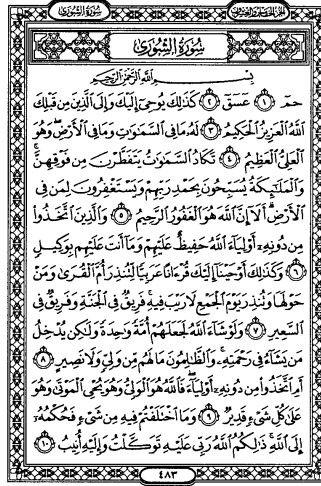 سُورَةُ الشُّورَىٰ
الجُزْءُ الخَامِسُ وَالعِشْرُونَ
سُورَةُ الشُّورَىٰ
بِسْمِ اللَّهِ الرَّحْمَٰنِ الرَّحِيمِ
حمٓ ١ عٓسٓقٓ ٢ كَذَٰلِكَ يُوحِيٓ إِلَيْكَ وَإِلَى ٱلَّذِينَ مِن قَبْلِكَ
ٱللَّهُ ٱلْعَزِيزُ ٱلْحَكِيمُ ٣ لَهُۥ مَا فِى ٱلسَّمَٰوَٰتِ وَمَا فِى ٱلْأَرْضِ ۖ وَهُوَ
ٱلْعَلِىُّ ٱلْعَظِيمُ ٤ تَكَادُ ٱلسَّمَٰوَٰتُ يَتَفَطَّرْنَ مِن فَوْقِهِنَّ ۚ
وَٱلْمَلَٰٓئِكَةُ يُسَبِّحُونَ بِحَمْدِ رَبِّهِمْ وَيَسْتَغْفِرُونَ لِمَن فِى
ٱلْأَرْضِ ۗ أَلَآ إِنَّ ٱللَّهَ هُوَ ٱلْغَفُورُ ٱلرَّحِيمُ ٥ وَٱلَّذِينَ ٱتَّخَذُوا۟
مِن دُونِهِۦٓ أَوْلِيَآءَ ٱللَّهُ حَفِيظٌ عَلَيْهِمْ وَمَآ أَنتَ عَلَيْهِم بِوَكِيلٍ
٦ وَكَذَٰلِكَ أَوْحَيْنَآ إِلَيْكَ قُرْءَانًا عَرَبِيًّا لِّتُنذِرَ أُمَّ ٱلْقُرَىٰ وَمَنْ
حَوْلَهَا وَتُنذِرَ يَوْمَ ٱلْجَمْعِ لَا رَيْبَ فِيهِ ۚ فَرِيقٌ فِى ٱلْجَنَّةِ وَفَرِيقٌ فِى
ٱلسَّعِيرِ ٧ وَلَوْ شَآءَ ٱللَّهُ لَجَعَلَهُمْ أُمَّةً وَٰحِدَةً وَلَٰكِن يُدْخِلُ
مَن يَشَآءُ فِى رَحْمَتِهِۦ ۚ وَٱلظَّٰلِمُونَ مَا لَهُم مِّن وَلِىٍّ وَلَا نَصِيرٍ ٨
أَمِ ٱتَّخَذُوا۟ مِن دُونِهِۦٓ أَوْلِيَآءَ ۖ فَٱللَّهُ هُوَ ٱلْوَلِىُّ وَهُوَ يُحْىِ ٱلْمَوْتَىٰ وَهُوَ
عَلَىٰ كُلِّ شَىْءٍ قَدِيرٌ ٩ وَمَا ٱخْتَلَفْتُمْ فِيهِ مِن شَىْءٍ فَحُكْمُهُۥٓ
إِلَى ٱللَّهِ ۚ ذَٰلِكُمُ ٱللَّهُ رَبِّى عَلَيْهِ تَوَكَّلْتُ وَإِلَيْهِ أُنِيبُ ١٠
٤٨٣